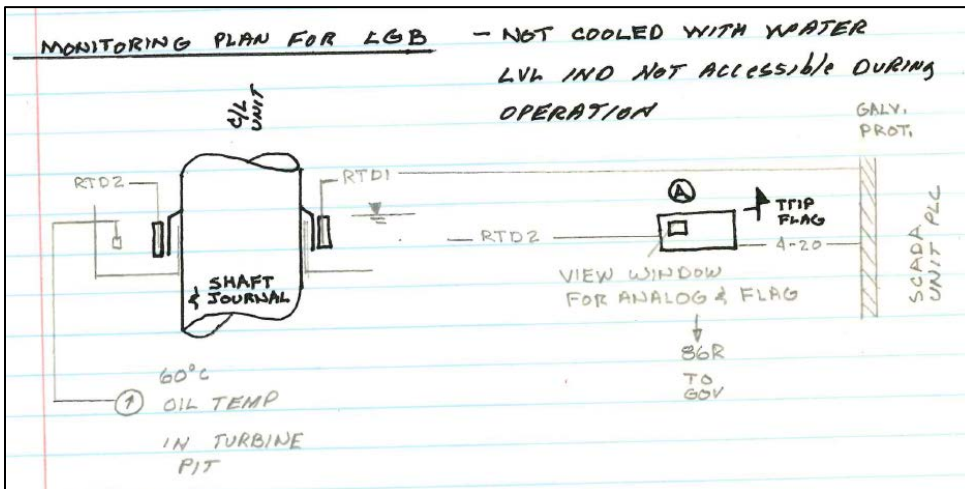 MONITORING PLAN FOR LGB - NOT COOLED WITH WATER
LVL IND NOT ACCESSIBLE DURING
OPERATION
C/L
UNIT
GALV.
PROT.
RTD2
RTD1
A
TTIP
FLAG
RTD2
4-20
SCADA
UNIT PLC
VIEW WINDOW
FOR ANALOG & FLAG
SHAFT
& JOURNAL
86R
TO
GOV
60°C
OIL TEMP
IN TURBINE
PIT